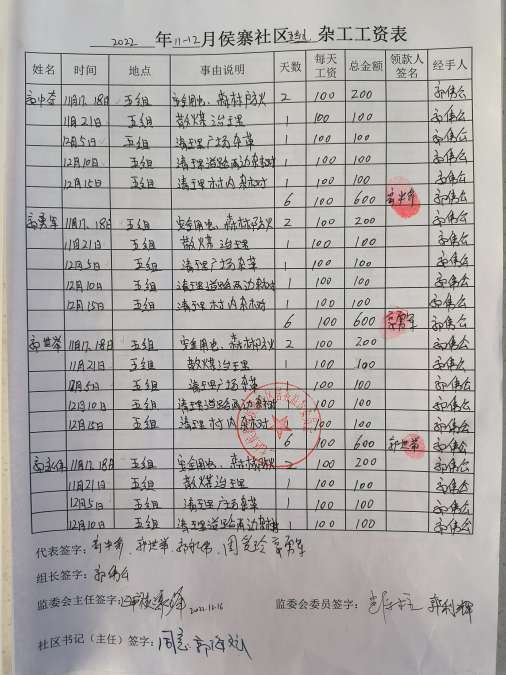 2022 年 11-12 月侯寨社区 五组 杂工工资表
姓名 时间 地点 事由说明 天数 每天工资 总金额 领款人签名 经手人
11月17、18日 五组 安全用电、森林防火 2 100 200 郭伟会
11月21日 五组 散煤治理 1 100 100 郭伟会
12月5日 五组 清理广场杂草 1 100 100 郭伟会
12月10日 五组 清理道路两边杂树 1 100 100 郭伟会
12月15日 五组 清理村内杂树 1 100 100 郭伟会
6 100 600 郭伟会
11月17、18日 五组 安全用电、森林防火 2 100 200 郭伟会
11月21日 五组 散煤治理 1 100 100 郭伟会
12月5日 五组 清理广场杂草 1 100 100 郭伟会
12月10日 五组 清理道路两边杂树 1 100 100 郭伟会
12月15日 五组 清理村内杂树 1 100 100 郭伟会
6 100 600 郭伟会
郭世举 11月17、18日 五组 安全用电、森林防火 2 100 200 郭伟会
11月21日 五组 散煤治理 1 100 100 郭伟会
12月5日 五组 清理广场杂草 1 100 100 郭伟会
12月10日 五组 清理道路两边杂树 1 100 100 郭伟会
12月15日 五组 清理村内杂树 1 100 100 郭伟会
6 100 600 郭世举 郭伟会
11月17、18日 五组 安全用电、森林防火 2 100 200 郭伟会
11月21日 五组 散煤治理 1 100 100 郭伟会
12月5日 五组 清理广场杂草 1 100 100 郭伟会
12月10日 五组 清理道路两边杂树 1 100 100 郭伟会
代表签字： 郭世举
组长签字： 郭伟会
监委会主任签字： 2022.12.16 监委会委员签字： 郭利辉
社区书记（主任）签字： 同意